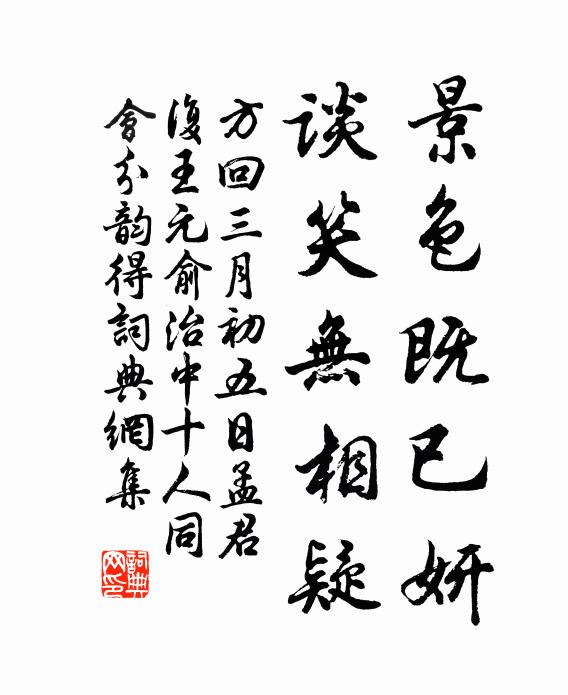 景色既已妍
談笑無相疑
方回三月初五日孟君
復王元俞治中十人同
會分韵得詞典網集
詞典
网印